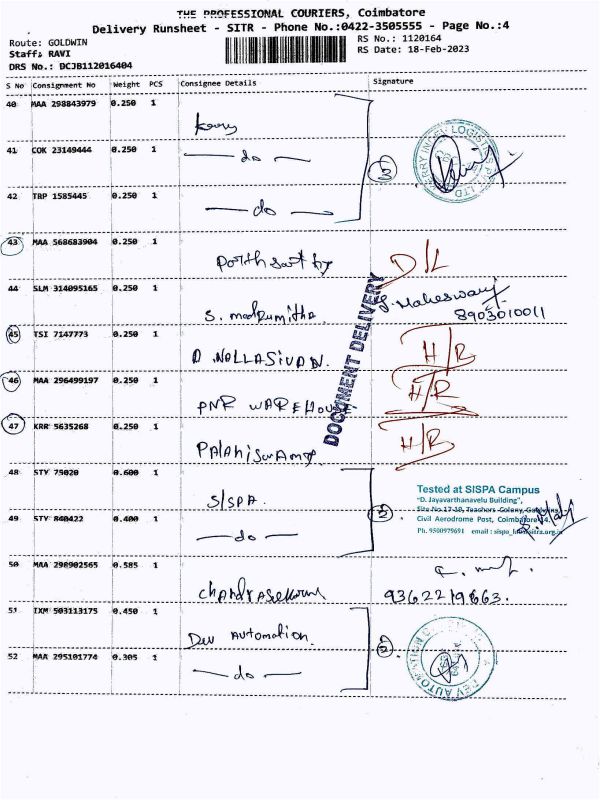 THE PROFESSIONAL COURIERS, Coimbatore
Delivery Runsheet - SITR - Phone No.:0422-3505555 - Page No.:4
Route: GOLDWIN
RS No.: 1120164
Staff: RAVI
RS Date: 18-Feb-2023
DRS No.: DCJB112016404
S No Consignment No Weight PCS Consignee Details Signature
40 MAA 298843979 0.250 1
41 COK 23149444 0.250 1
- do -
3
42 TRP 1585445 0.250 1
- do -
43 MAA 568683904 0.250 1
D/L
44 SLM 314095165 0.250 1
S. madhumitha
8903010011
45 TSI 7147773 0.250 1
D. NALLASIVAN.
H/R
46 MAA 296499197 0.250 1
PNR WAREHOUSE
H/R
47 KRR 5635268 0.250 1
Palaniswamy
H/R
DOCUMENT DELIVERY
48 STY 75020 0.600 1
SISPA
Tested at SISPA Campus
"D. Jayavarthanavelu Building",
Site No.17-19, Teachers Colony,
49 STY 840422 0.400 1
- do -
2
Civil Aerodrome Post, Coimbatore
Ph. 9500979691 email :
50 MAA 298902565 0.585 1
Chandrasekaran
9362219663.
51 IXM 503113175 0.450 1
Dev Automation.
2
52 MAA 295101774 0.305 1
- do -
DEV AUTOMATION